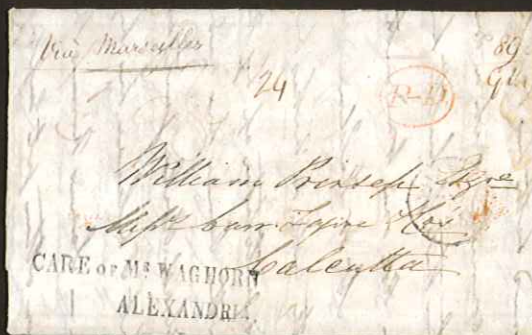 Via Marseilles
24
R-P
William Prinsep Esqre
Messrs Carr Tagore & Co
Calcutta
CARE OF MR WAGHORN
ALEXANDRIA.